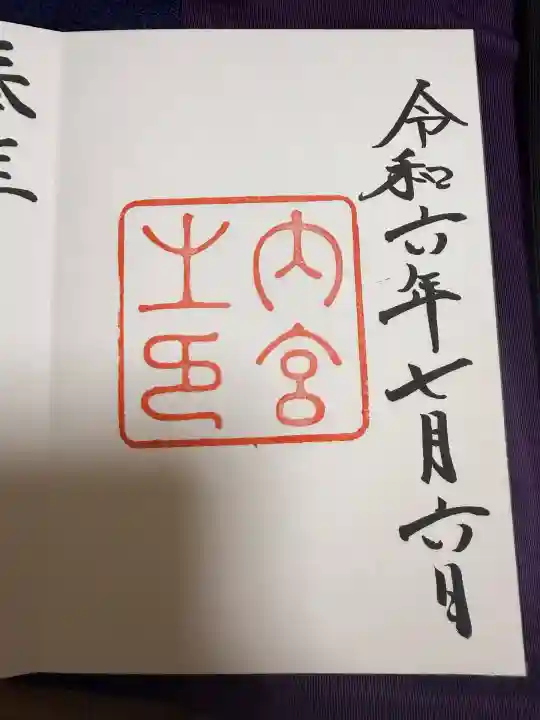 令和六年七月六日
内宮
之印
奉拝